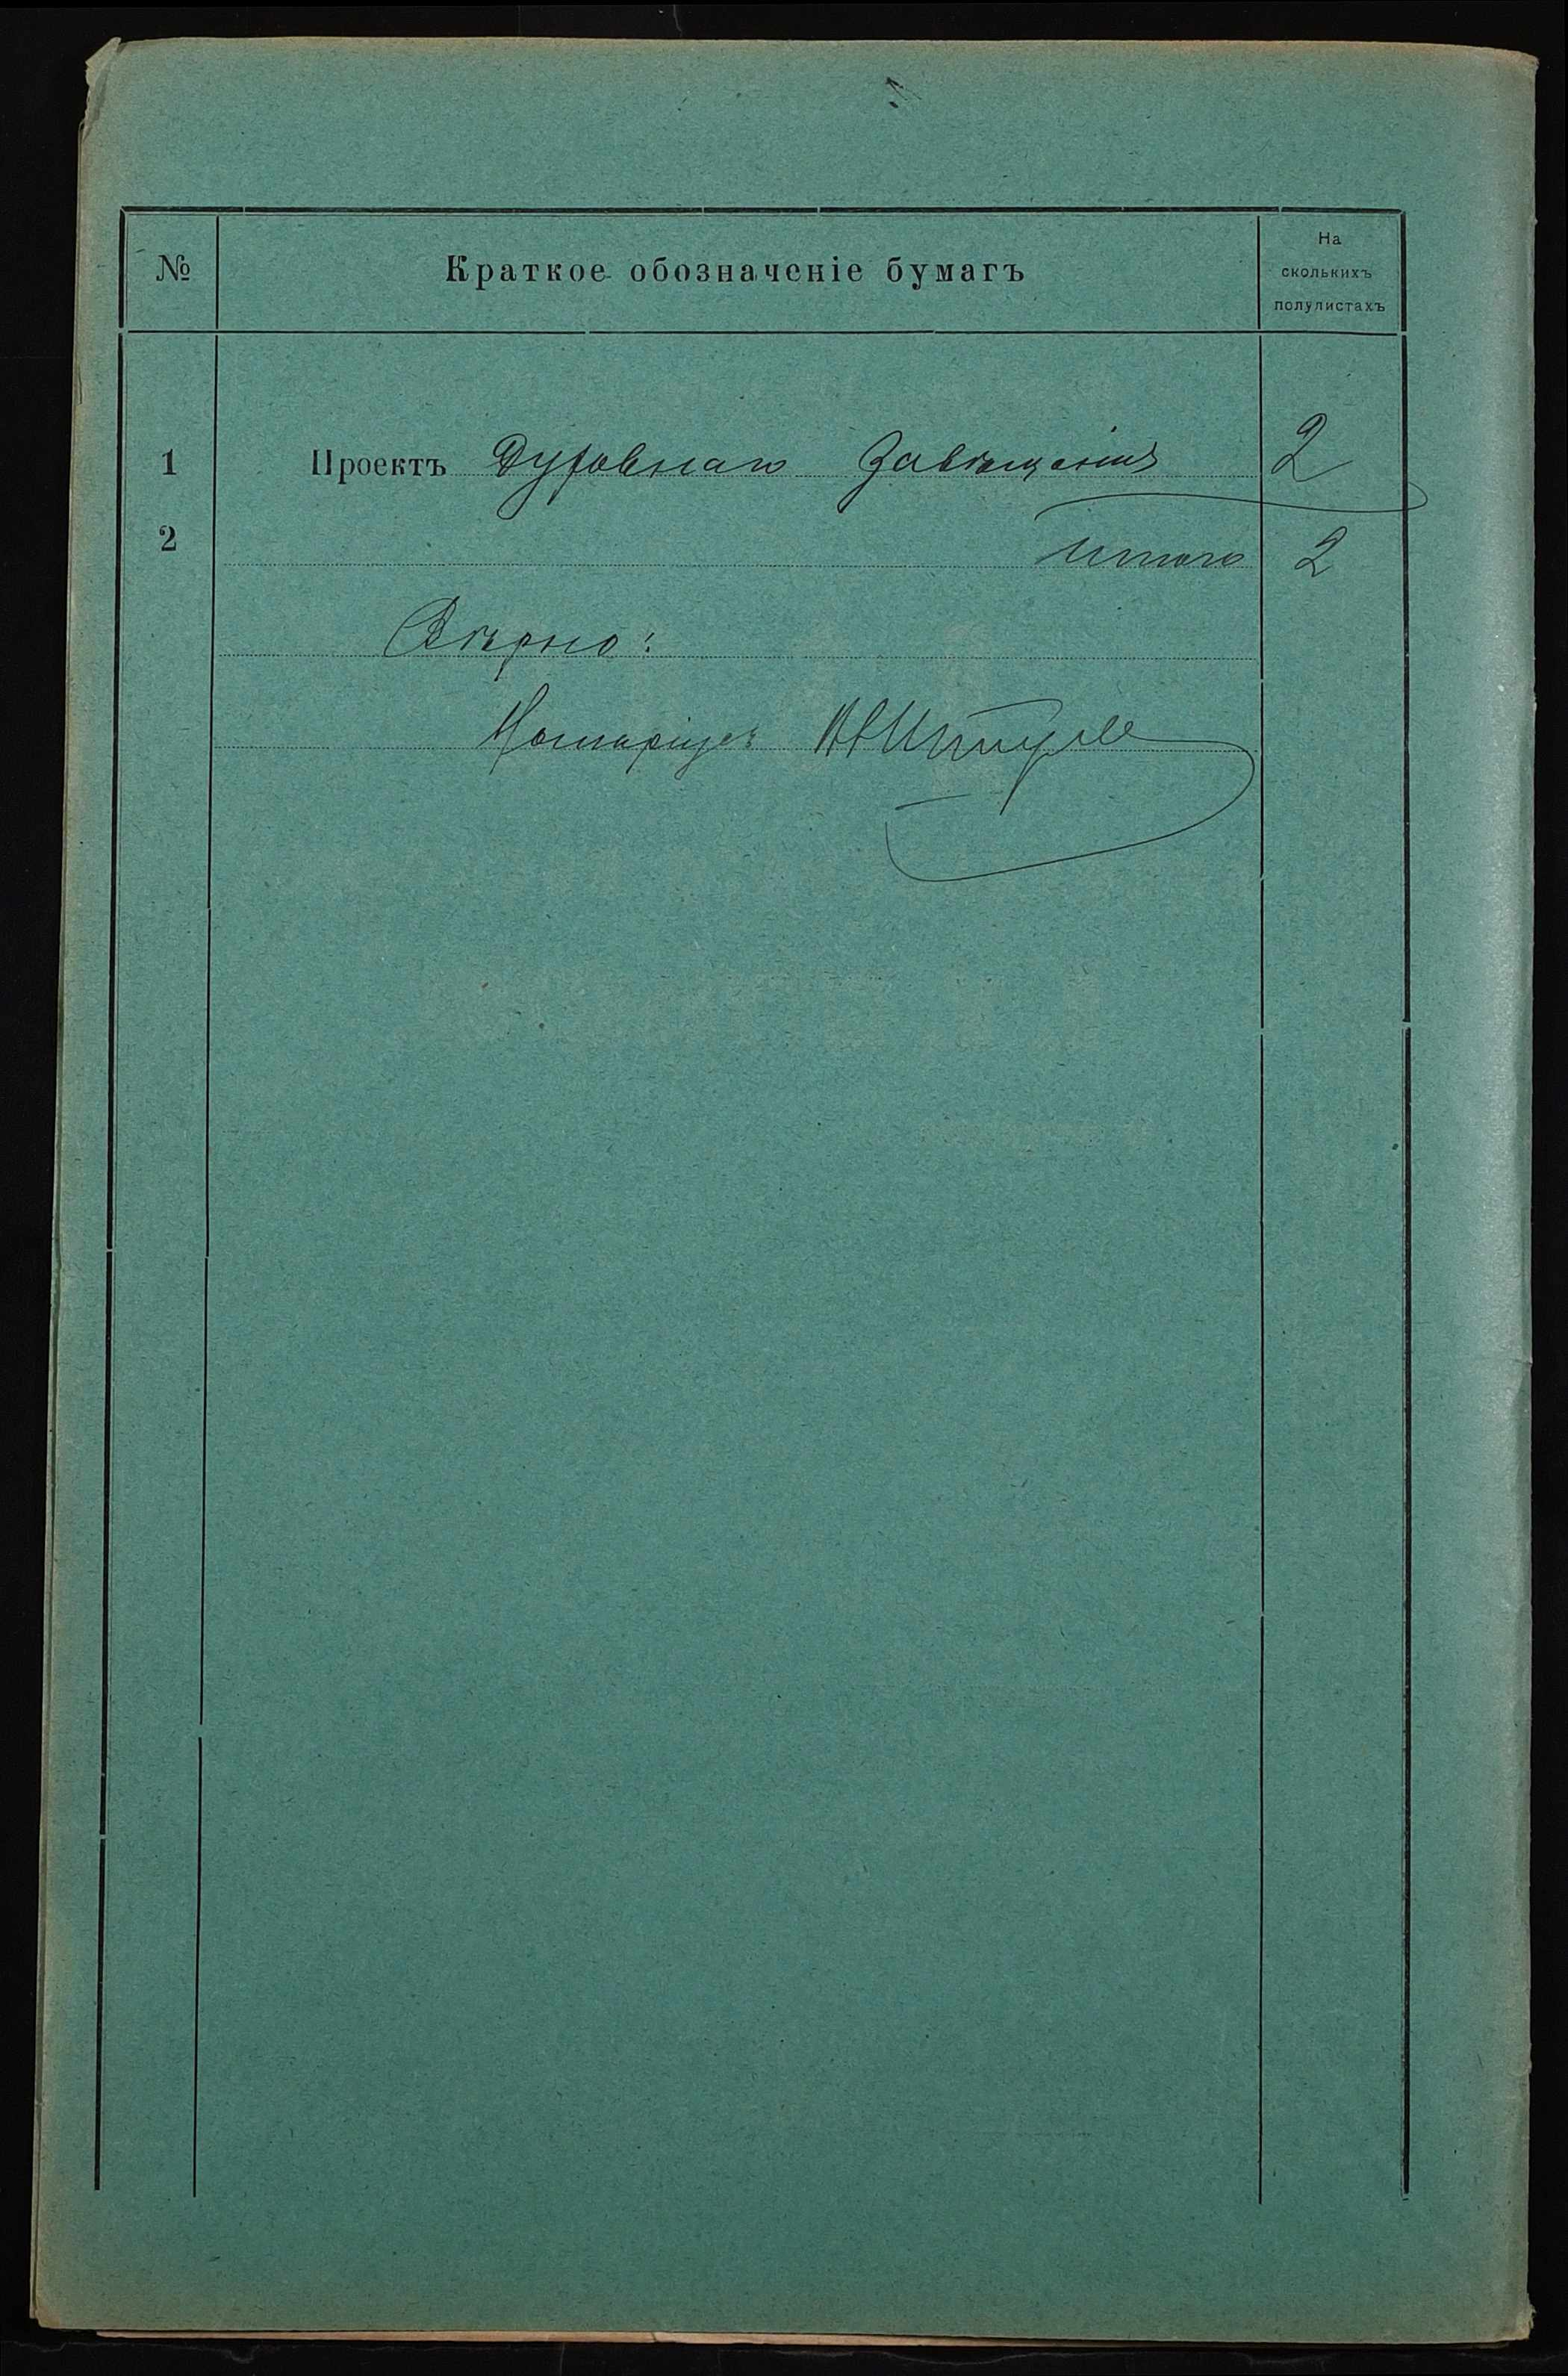 № Краткое обозначеніе бумагъ На
сколькихъ
полулистахъ
1 Проектъ Духовнаго Завѣщанія 2
2 итого 2
Вѣрно:
Нотаріусъ